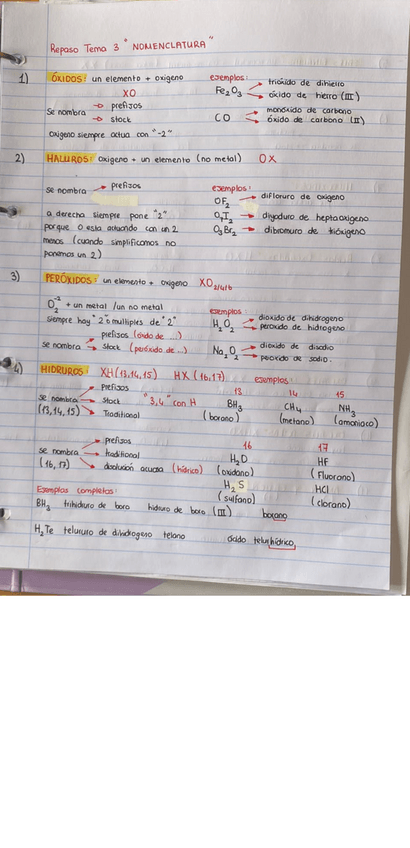 Repaso Tema 3 "NOMENCLATURA"
1) ÓXIDOS: un elemento + oxigeno
XO
Se nombra → prefijos
→ stock
oxigeno siempre actua con "-2"
ejemplos:
Fe2O3 → trióxido de dihierro
→ óxido de hierro (III)
CO → monóxido de carbono
→ óxido de carbono (II)
2) HALUROS: oxigeno + un elemento (no metal) OX
se nombra → prefijos
a derecha siempre pone "2"
porque O esta actuando con un 2
menos (cuando simplificamos no
ponemos un 2)
ejemplos:
OF2 → difloruro de oxigeno
O7I2 → diyoduro de heptaoxigeno
O3Br2 → dibromuro de trióxigeno
3) PERÓXIDOS: un elemento + oxigeno XO2/4/6
O2-2 + un metal /un no metal
siempre hay "2" o multiples de "2"
se nombra → prefijos (óxido de ...)
→ stock (peróxido de ...)
ejemplos:
H2O2 → dióxido de dihidrogeno
→ peroxido de hidrogeno
Na2O2 → dióxido de disodio
→ peroxido de sodio.
4) HIDRUROS: XH(13,14,15) HX (16,17)
ejemplos:
se nombra → prefijos
(13,14,15) → stock "3,4" con H
→ Traditional
13 14 15
BH3 CH4 NH3
(borano) (metano) (amoniaco)
se nombra → prefijos
(16,17) → traditional
→ disolución acuosa (hídrico)
16 17
H2O HF
(oxidano) (Fluorano)
H2S HCl
(sulfano) (clorano)
Exemplos completos:
BH3 trihidruro de boro hidruro de boro (III) borano
H2Te telururo de dihidrogeno telano ácido telurhídrico